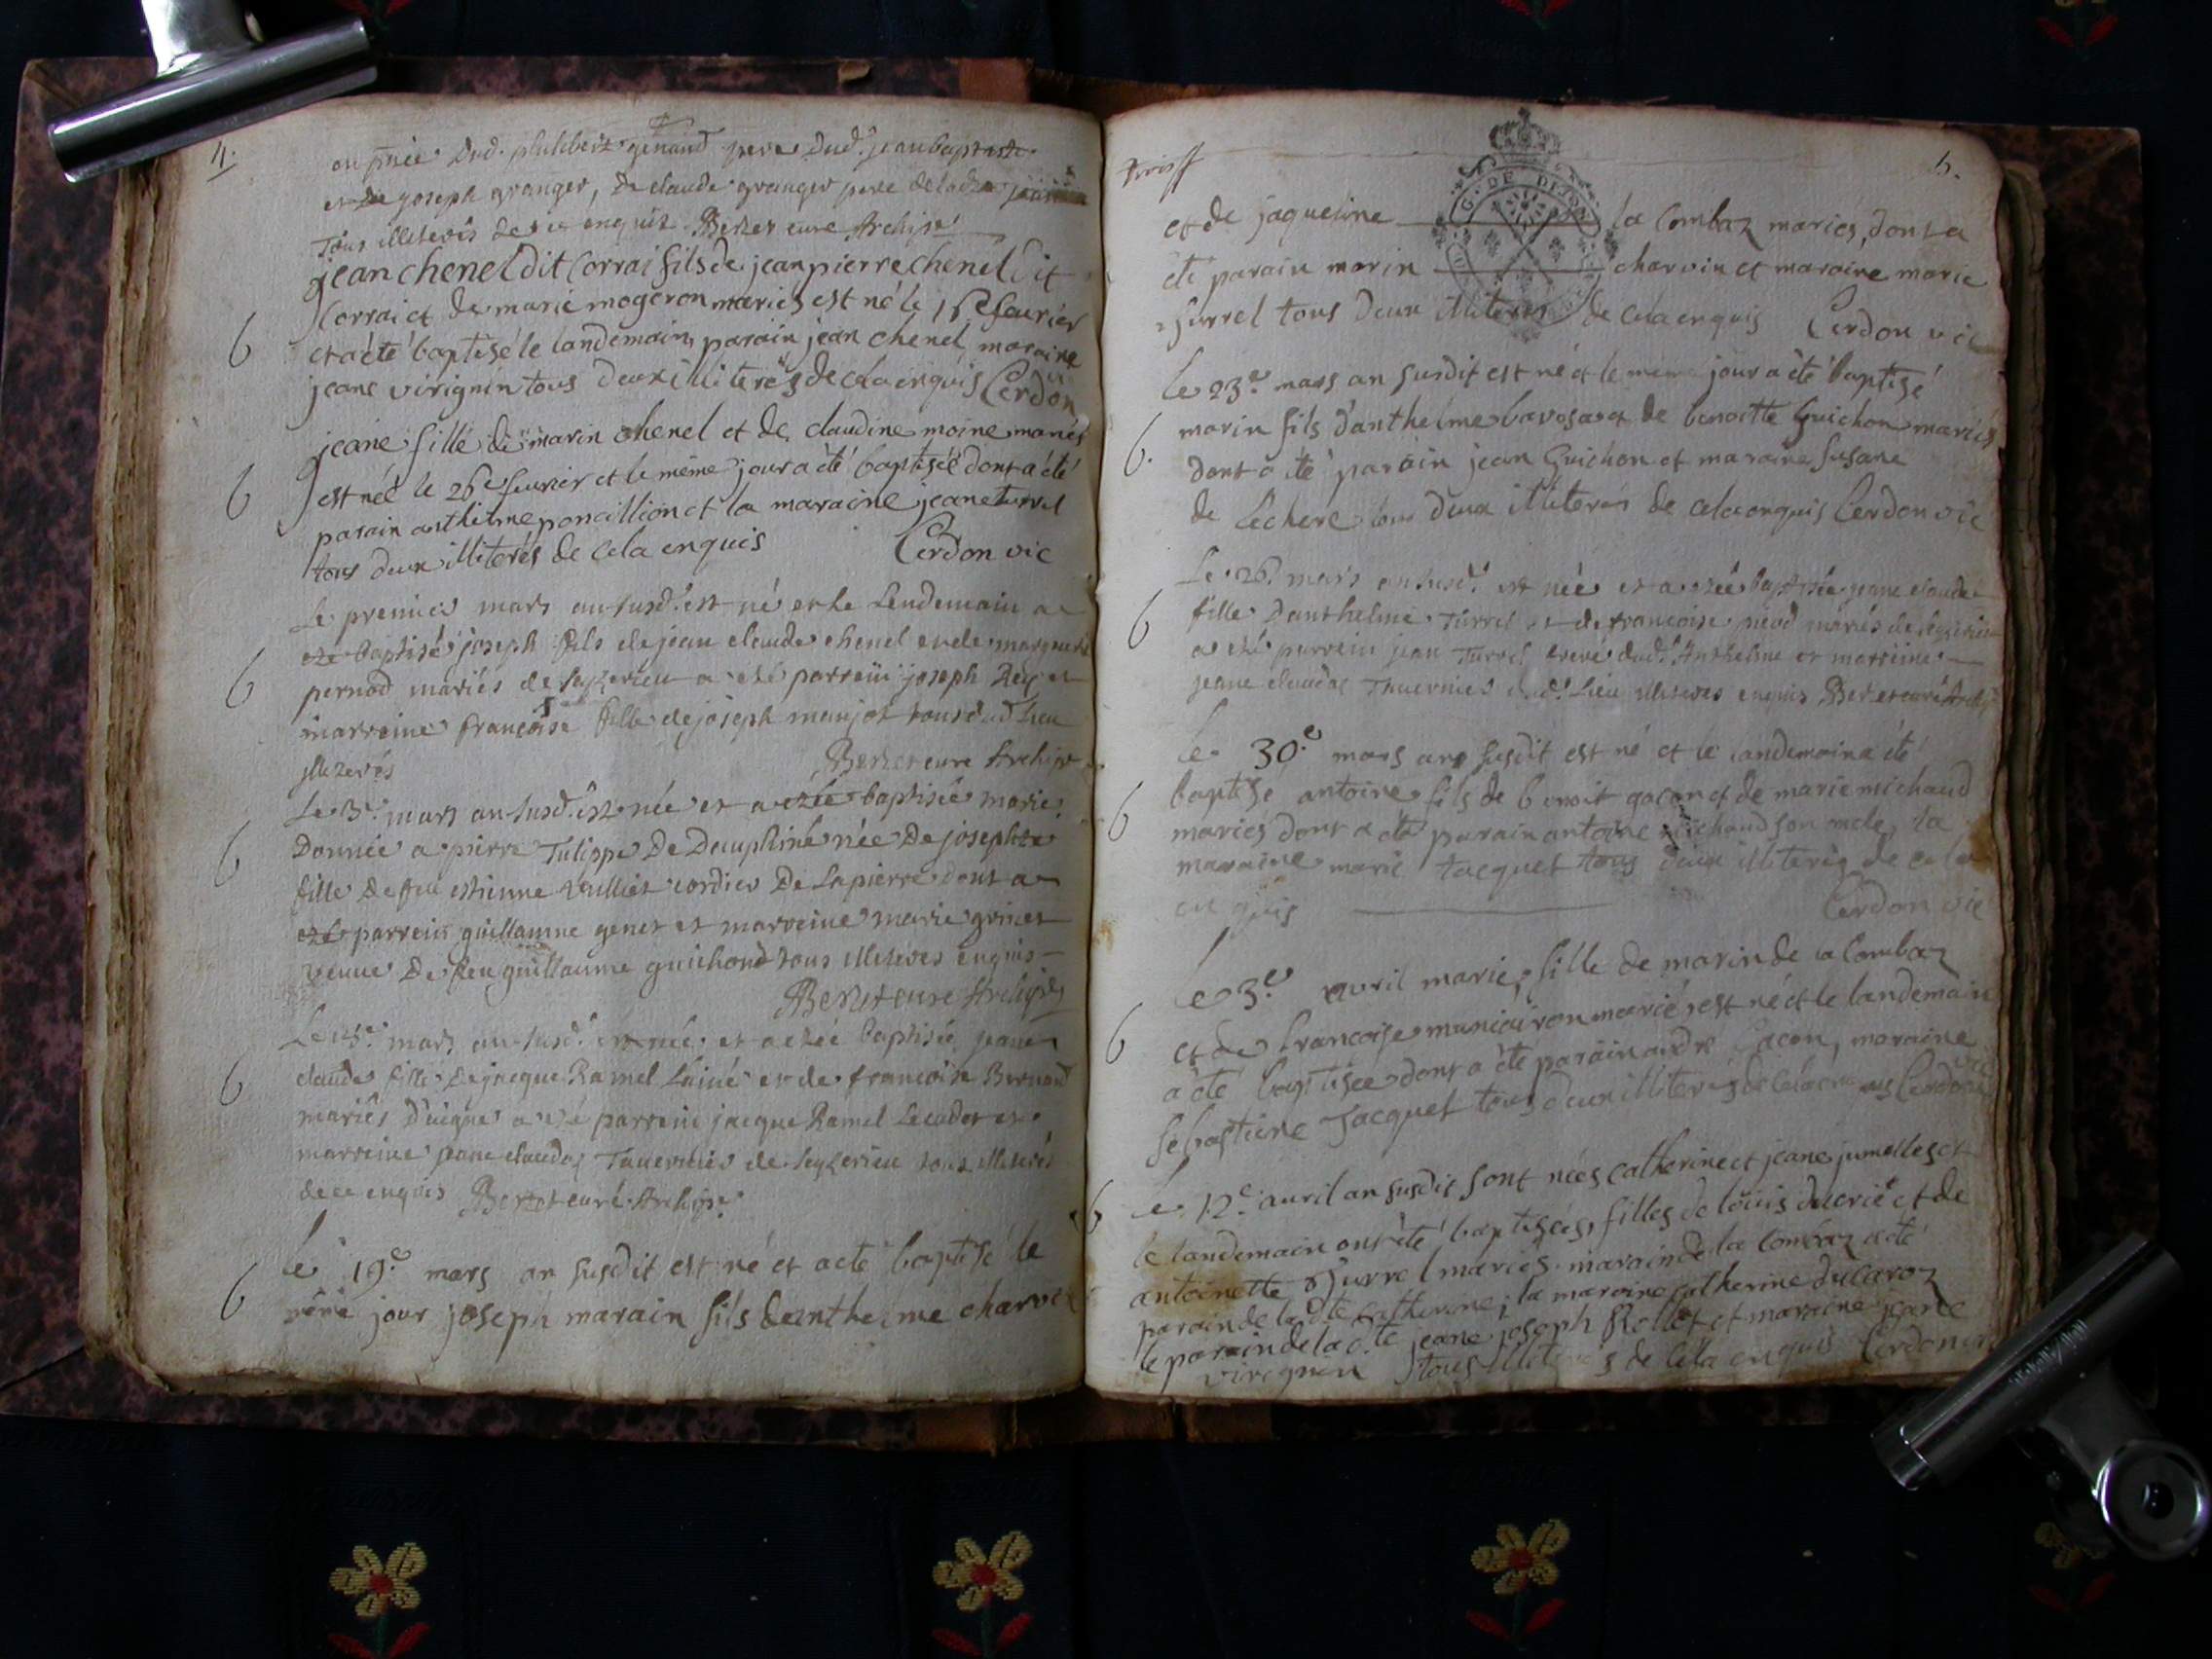 4.
en pñce Dud. philibert genand pere Dud. jean baptiste
et de joseph granger, De claude granger pere de ladte
Tous illiterés de ce enquis Berzet cure Archip
jean chenel dit Corrai fils de jean pierre chenel dit
Corrai et de marie mogeron mariés est né le feurier
et a été baptisé le landemain, parain jean chenel maraine
jeane virignin tous deux illiterés de cela enquis Cerdon
6
jeane fille de marin chenel et de claudine moine mariés
est née le 26e feurier et le même jour a été baptisée dont a été
parain anthelme poncillion et la maraine jeane turrel
tous deux illiterés de cela enquis Cerdon vic
6
Le premier mars an susd. est né et le Lendemain a
eté baptisé joseph fils de jean claude chenel et de marguerite
pernod mariés de seyzerieu a eté parrein joseph Rey et
marreine françoise fille de joseph manjot tous dud Lieu
illiterés Berzet cure Archip
6
Le 3e mars an susd. est née et a etée baptisée marie
Donnée a pierre Tulippe De Dauphiné née De josephte
fille De feu estienne Vulliet cordier De Lapierre dont a
eté parrein guillaume genet et marreine marie grinet
veuue De feu guillaume guichond tous illiterés enquis
Berzet cure Archip
6
Le mars an susd. est née et a etée baptisée jeane
claude fille De jacque Ramel Lainé et de francoise Bernard
mariés D'aigne a eté parrein jacque Ramel Le cadet et
marreine jeane claudaz Tauernier de seyzerieu tous illiterés
de ce enquis Berzet curé Archip.
6
le 19e mars an susdit est né et a été baptisé le
même jour joseph marain fils danthelme charvin
6
5.
et de jaqueline la Combaz mariés, dont a
été parain marin charvin et maraine marie
turrel tous deux illiterés de cela enquis Cerdon vic
le 23e mars an susdit est né et le même jour a été baptisé
marin fils d'anthelme bavosat et de benoitte Guichon mariés
dont a été parain jean Guichon et maraine susane
de Lechere tous deux illiterés de cela enquis Cerdon vic
6.
Le 26 mars an susd. est née et a etée baptisée jeane claude
fille Danthelme Turrel et de francoise mariés de seyzerieu
a eté parrein jean Turrel frere dud. Anthelme et marreine
jeane claudaz Tauernier dud. Lieu illiterés enquis Berzet curé Archip
6
le 30e mars an susdit est né et le landemain a été
baptisé antoine fils de benoit gacon et de marie michaud
mariés dont a été parain antoine michaud son oncle, la
maraine marie tacquet tous deux illiterés de cela
enquis Cerdon vic
6
le 3e avril marie, fille de marin de la Combaz
et de francoise muniairon mariés est né et le landemain
a été baptisée dont a été parain andré Gacon, maraine
sebastiene Jacquet tous deux illiterés de cela enquis Cerdon vic
6
le 12e auril an susdit sont nées catherine et jeane jumelles et
le landemain ont été baptisées, filles de loüis ducrie et de
antoinette turrel mariés. marain de la Combaz a été
parain de la dte catherine; la maraine catherine ducaroz
le parain de la dte jeane joseph Rollet et maraine jeane
virignin tous illiterés de cela enquis Cerdon vic
6
G. DE DIJON